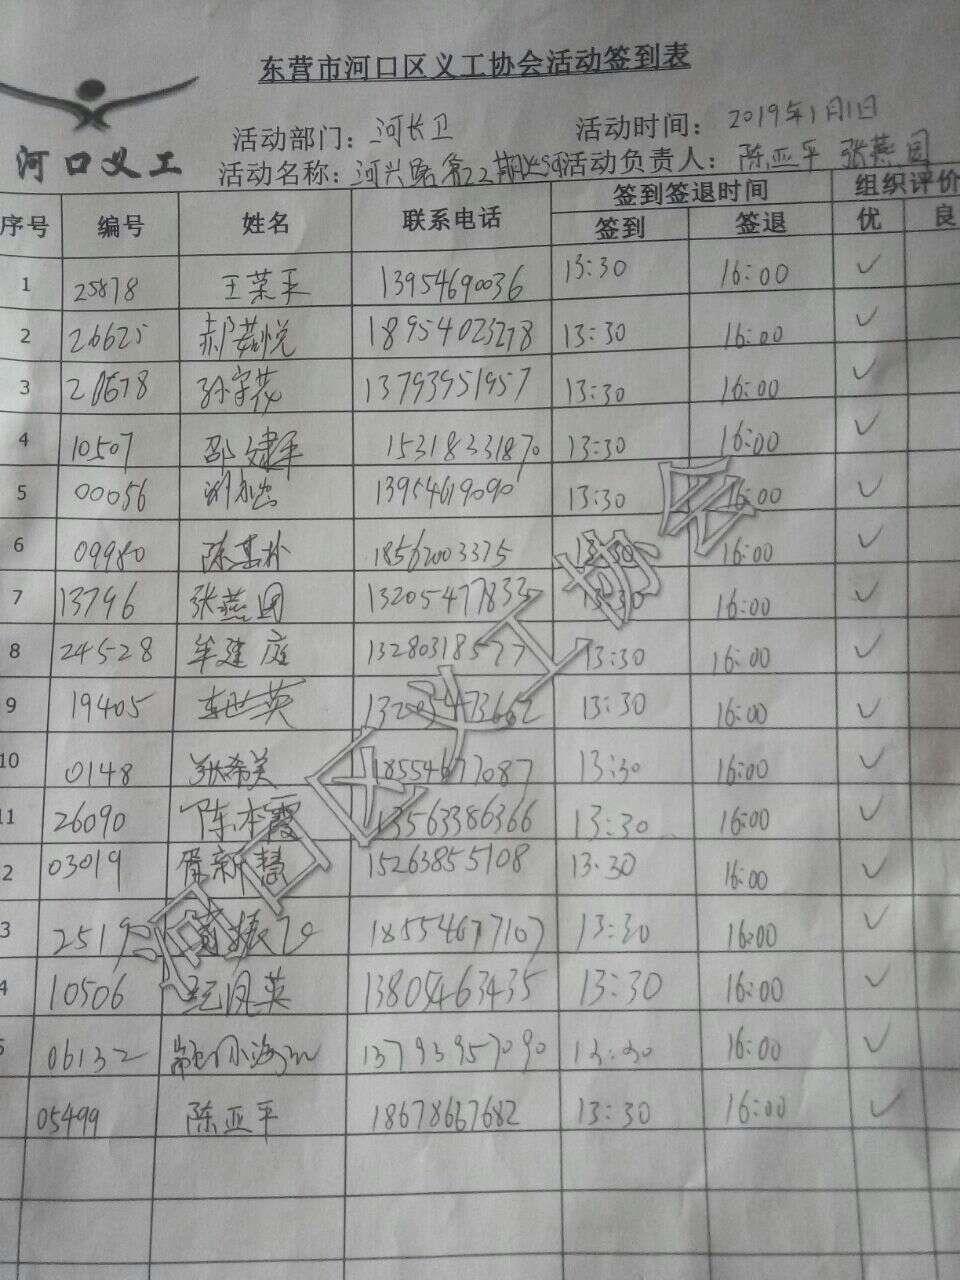 东营市河口区义工协会活动签到表
河口义工
活动部门：河长卫 活动时间：2019年1月1日
活动名称：河兴路第22期 活动负责人：陈亚平 张燕团
序号 编号 姓名 联系电话 签到签退时间 组织评价
签到 签退 优 良
1 25878 王荣平 13954690036 13:30 16:00 ✓
2 26625 郝茹悦 18954023278 13:30 16:00 ✓
3 20678 孙字花 13793951957 13:30 16:00 ✓
4 10507 邵建平 15318231870 13:30 16:00 ✓
5 00056 13954619090 13:30 16:00 ✓
6 09980 陈其朴 18562003375 13:30 16:00 ✓
7 13796 张燕团 13205477833 13:30 16:00 ✓
8 24528 牟建庭 13280318577 13:30 16:00 ✓
9 19405 13:30 16:00 ✓
10 0148 张希美 18554677087 13:30 16:00 ✓
11 26090 陈本霞 13563386366 13:30 16:00 ✓
2 03019 胥新慧 15263855108 13:30 16:00 ✓
3 18554677107 13:30 16:00 ✓
4 10506 纪凤英 13805463435 13:30 16:00 ✓
5 06132 13793957090 13:30 16:00 ✓
05499 陈亚平 18678667682 13:30 16:00 ✓
河口区义工协会